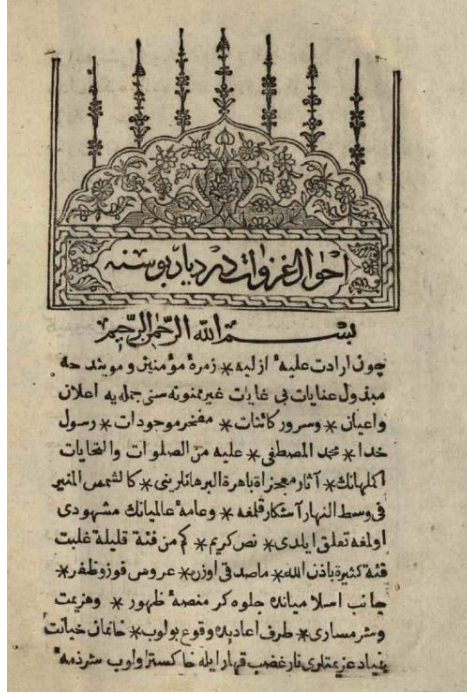 احوال غزوات در ديار بوسنه
بسم الله الرحمن الرحيم
چون ارادت عليهٔ ازليه * زمرهٔ مؤمنين و موحدينه
مبذول عنايات بى غايات غيرممنونه سنى جمله يه اعلان
واعيان * وسرور كائنات * مفخر موجودات * رسول
خدا * محمد المصطفى * عليه من الصلوات والتحيات
اكملهانك * آثار معجزاة باهرة البرهانلرينى * كالشمس المنير
فى وسط النهار آشكار قلمغه * وعامهٔ عالميانك مشهودى
اولمغه تعلق ايلدى * نص كريم * كم من فئة قليلة غلبت
فئة كثيرة باذن الله * ماصدقى اوزره * عروس فوز وظفر *
جانب اسلاميانده جلوه كر منصهٔ ظهور * وهزيمت
وشرمسارى * طرف اعاديده وقوع بولوب * خانمان خباثت
بنياد عزيمتلرى نار غضب قهار ايله خاكستر اولوب شرذمهٔ